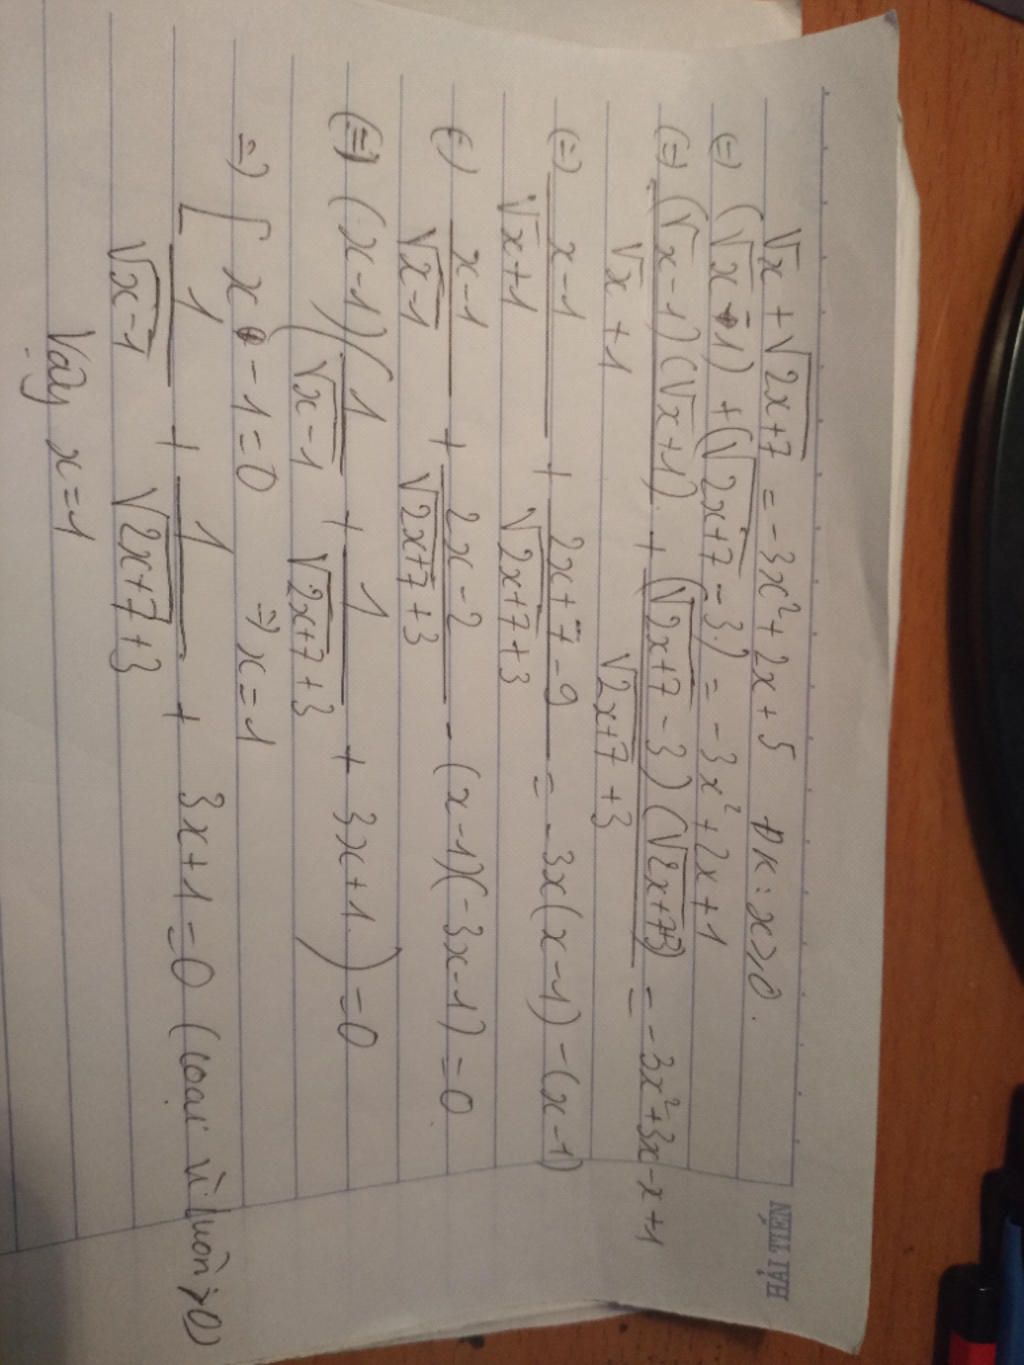 HẢI TIẾN
√x + √(2x+7) = -3x² + 2x + 5 ĐK: x ≥ 0.
(=) (√x - 1) + (√(2x+7) - 3) = -3x² + 2x + 1
(=) (√x - 1)(√x + 1)/(√x + 1) + (√(2x+7) - 3)(√(2x+7) + 3)/(√(2x+7) + 3) = -3x² + 3x - x + 1
(=) (x - 1)/(√x + 1) + (2x + 7 - 9)/(√(2x+7) + 3) = -3x(x - 1) - (x - 1)
(=) (x - 1)/√(x - 1) + (2x - 2)/(√(2x+7) + 3) - (x - 1)(-3x - 1) = 0
(=) (x - 1)(1/√(x - 1) + 1/(√(2x+7) + 3) + 3x + 1) = 0
=) [ x - 1 = 0 =) x = 1
[ 1/√(x - 1) + 1/(√(2x+7) + 3) + 3x + 1 = 0 (loại vì luôn > 0)
Vậy x = 1